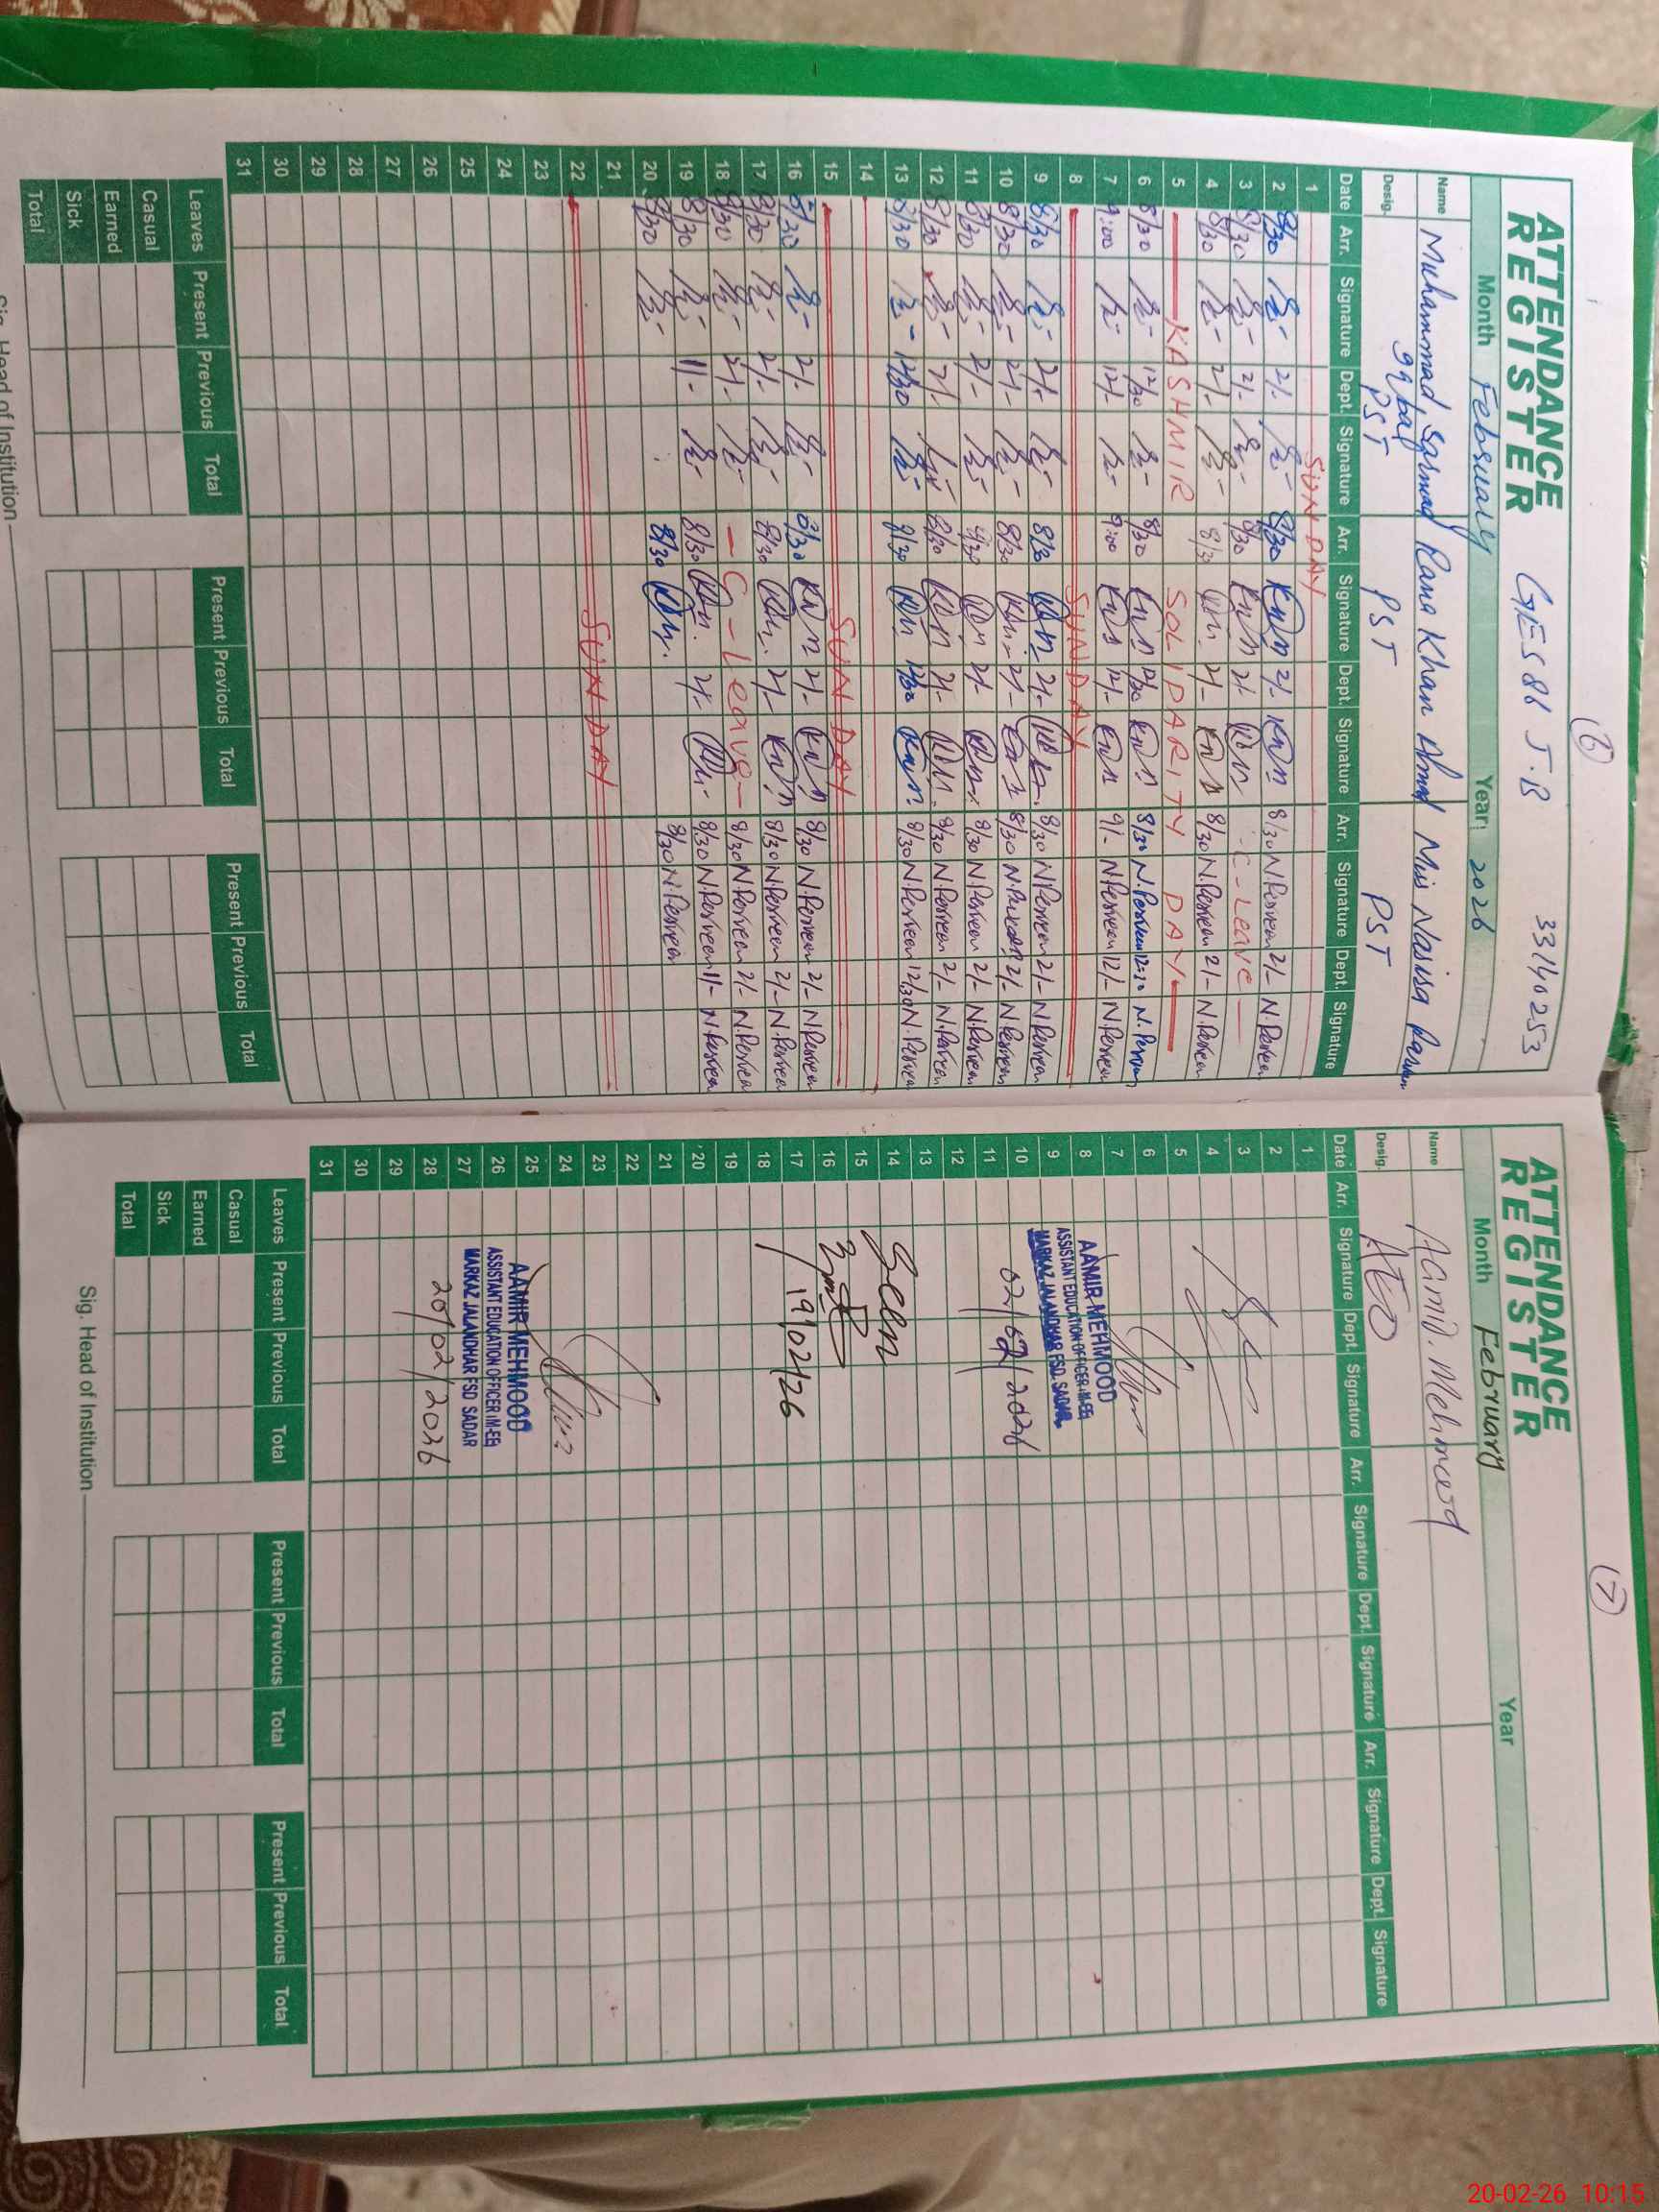 (6)
GES 88 J.B 33140253
ATTENDANCE
REGISTER
Month February Year 2026
Name Muhammad Sarmad Iqbal Rana Khan Ahmad Miss Nasisa Parveen
Desig. PST PST PST
Date Arr. Signature Dept. Signature Arr. Signature Dept. Signature Arr. Signature Dept. Signature
1 SUNDAY
2 8/30 2/- 8/30 2/- 8/30 N.Perveen 2/- N.Perveen
3 8/30 2/- 8/30 2/- - C-Leave -
4 8/30 2/- 8/30 2/- 8/30 N.Perveen 2/- N.Perveen
5 KASHMIR SOLIDARITY DAY
6 8/30 12/30 8/30 12/30 8/30 N.Perveen 12:30 N.Perveen
7 9:00 12/- 9:00 12/- 9/- N.Perveen 12/- N.Perveen
8 SUNDAY
9 8/30 2/- 8/30 2/- 8/30 N.Perveen 2/- N.Perveen
10 8/30 2/- 8/30 2/- 8/30 N.Perveen 2/- N.Perveen
11 8/30 2/- 8/30 2/- 8/30 N.Perveen 2/- N.Perveen
12 8/30 2/- 8/30 2/- 8/30 N.Perveen 2/- N.Perveen
13 8/30 12/30 8/30 12/30 8/30 N.Perveen 12/30 N.Perveen
14
15 SUNDAY
16 8/30 2/- 8/30 2/- 8/30 N.Perveen 2/- N.Perveen
17 8/30 2/- 8/30 2/- 8/30 N.Perveen 2/- N.Perveen
18 8/30 2/- - C-Leave - 8/30 N.Perveen 2/- N.Perveen
19 8/30 11- 8/30 8/30 N.Perveen 11- N.Perveen
20 8/30 8/30 8/30 N.Perveen
21
22 SUNDAY
23
24
25
26
27
28
29
30
31
Leaves Present Previous Total Present Previous Total Present Previous Total
Casual
Earned
Sick
Total
Sig. Head of Institution
(7)
ATTENDANCE
REGISTER
Month February Year
Name Aamir Mehmood
Desig. AEO
Date Arr. Signature Dept. Signature Arr. Signature Dept. Signature Arr. Signature Dept. Signature
1
2
3
4
5
6
7
8 AAMIR MEHMOOD
ASSISTANT EDUCATION OFFICER (M-EE)
9 MARKAZ JALANDHAR FSD. SADAR
10 02/02/2026
11
12
13
14 Seen
15
16
17 19/02/26
18
19
20
21
22
23
24
25 AAMIR MEHMOOD
26 ASSISTANT EDUCATION OFFICER (M-EE)
27 MARKAZ JALANDHAR FSD SADAR
28 20/02/2026
29
30
31
Leaves Present Previous Total Present Previous Total Present Previous Total
Casual
Earned
Sick
Total
Sig. Head of Institution
20-02-26 10:15